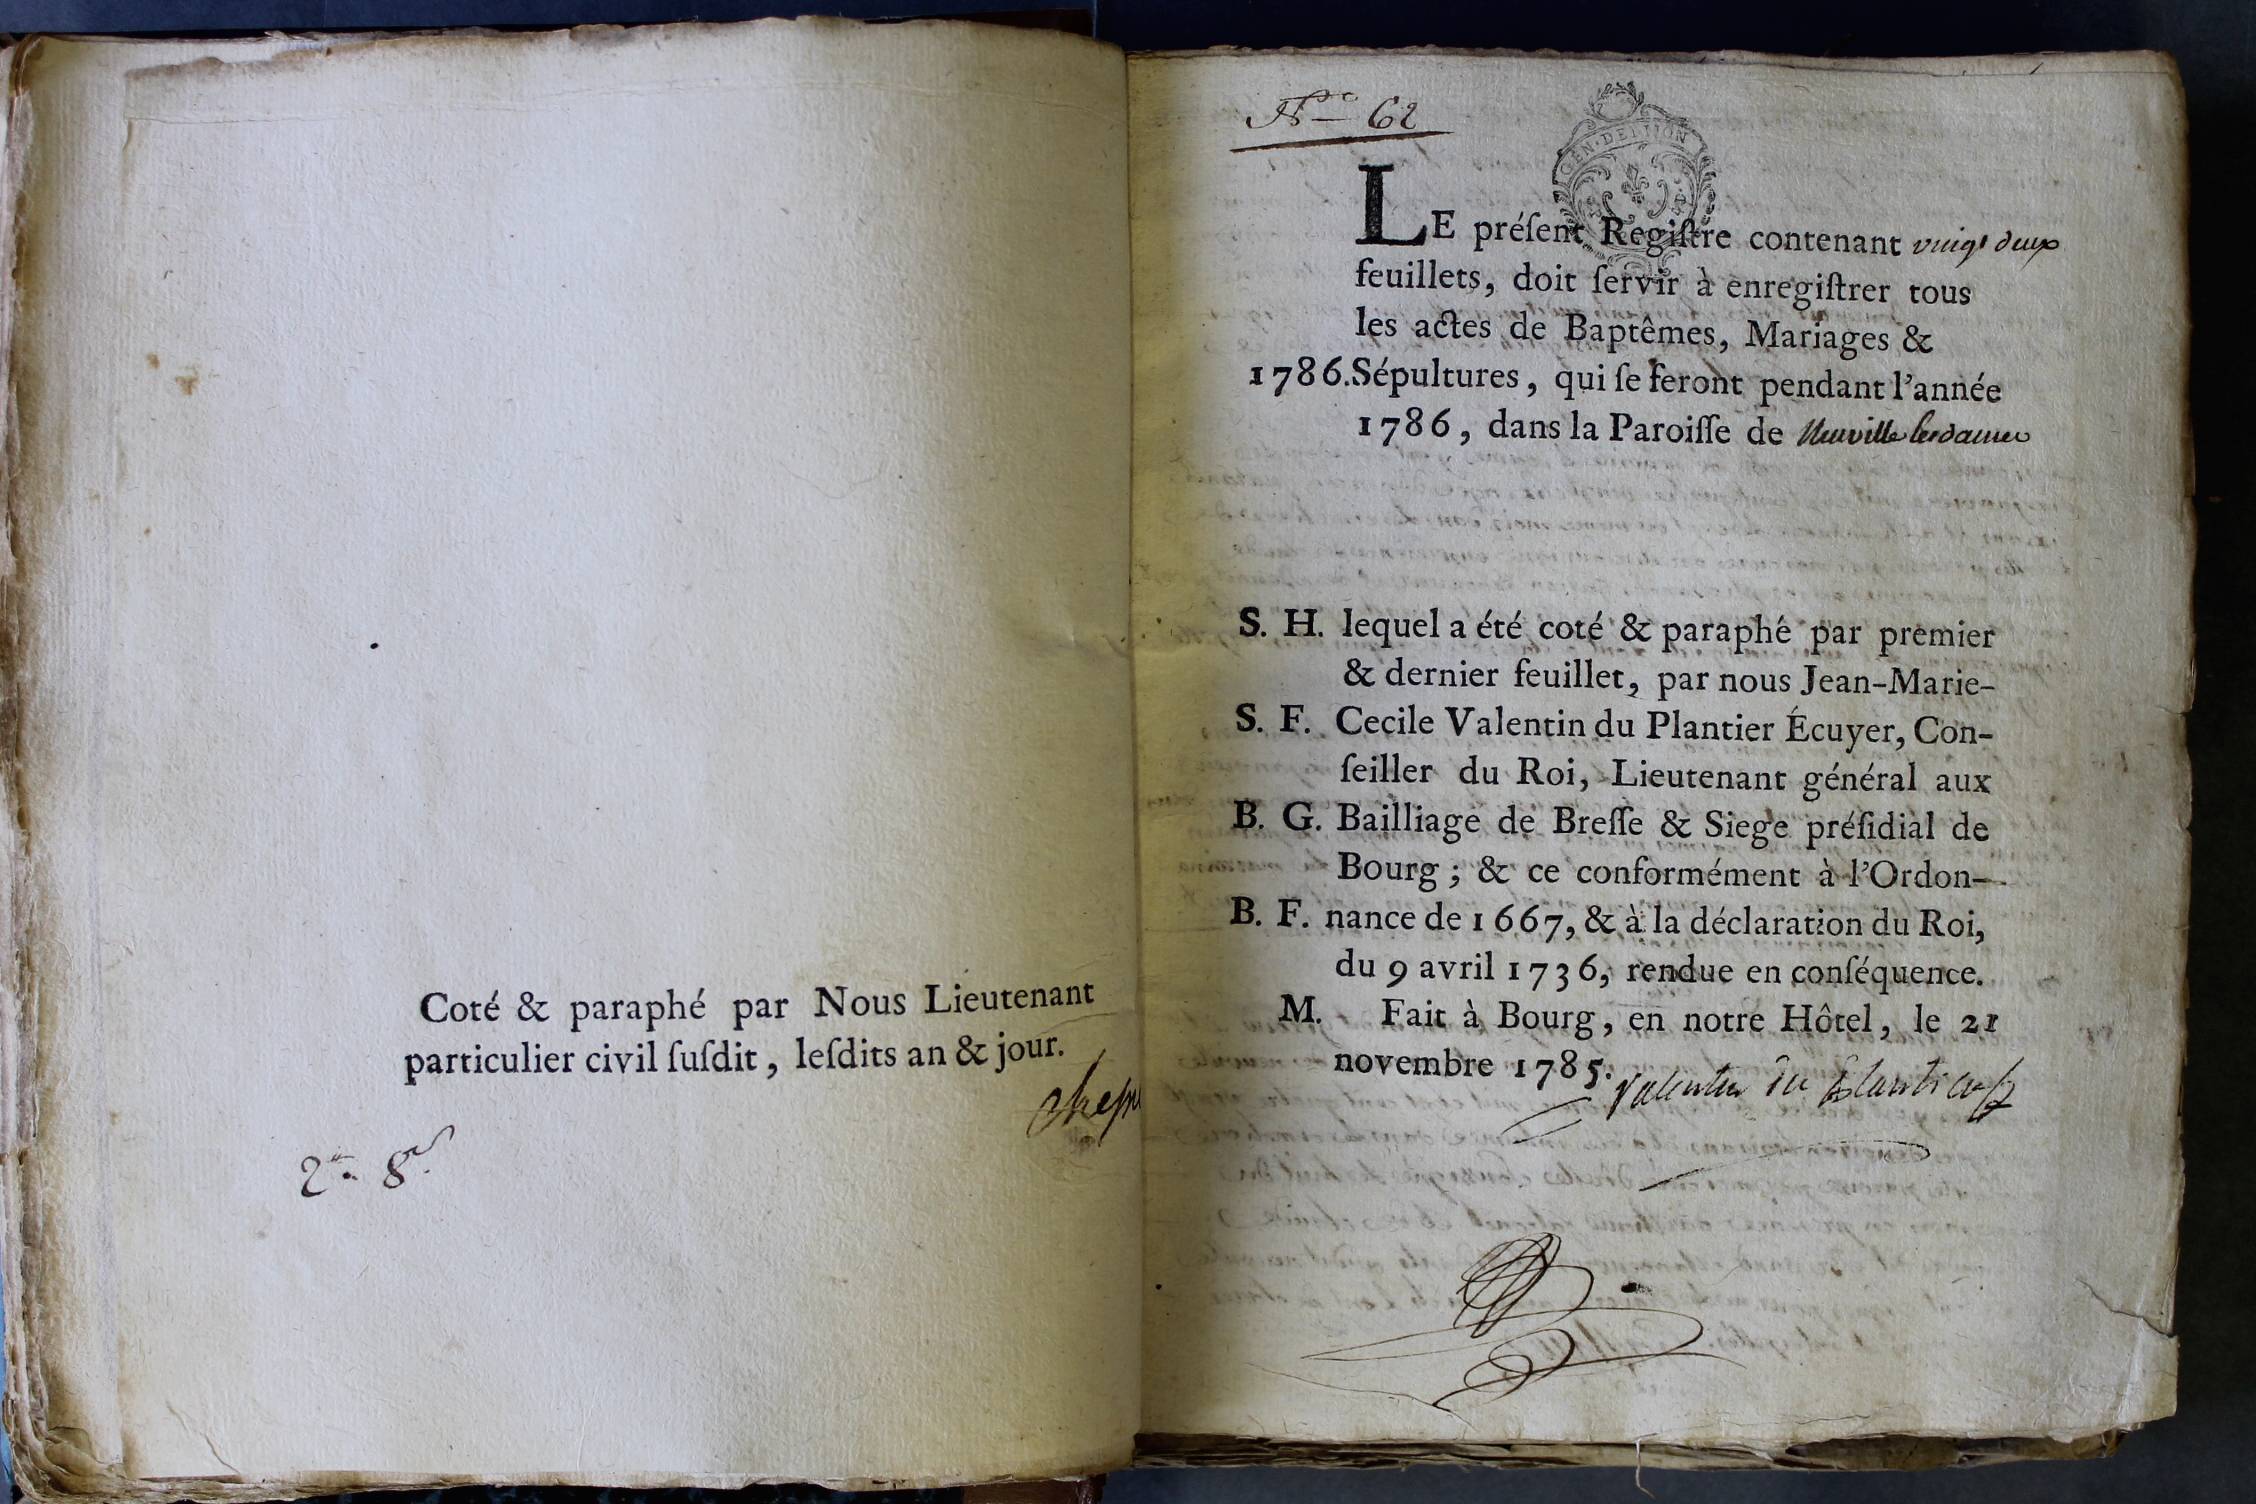 Coté & paraphé par Nous Lieutenant
particulier civil ſuſdit, leſdits an & jour.
2.. 8.
N.o 62
GEN. DE DIJON
LE préſent Regiſtre contenant vingt deux
feuillets, doit ſervir à enregiſtrer tous
les actes de Baptêmes, Mariages &
1786. Sépultures, qui ſe feront pendant l'année
1786, dans la Paroiſſe de Neuville les dames
S. H. lequel a été coté & paraphé par premier
& dernier feuillet, par nous Jean-Marie-
S. F. Cecile Valentin du Plantier Écuyer, Con-
ſeiller du Roi, Lieutenant général aux
B. G. Bailliage de Breſſe & Siege préſidial de
Bourg ; & ce conformément à l'Ordon-
B. F. nance de 1667, & à la déclaration du Roi,
du 9 avril 1736, rendue en conſéquence.
M. Fait à Bourg, en notre Hôtel, le 21
novembre 1785.
Valentin du Plantier